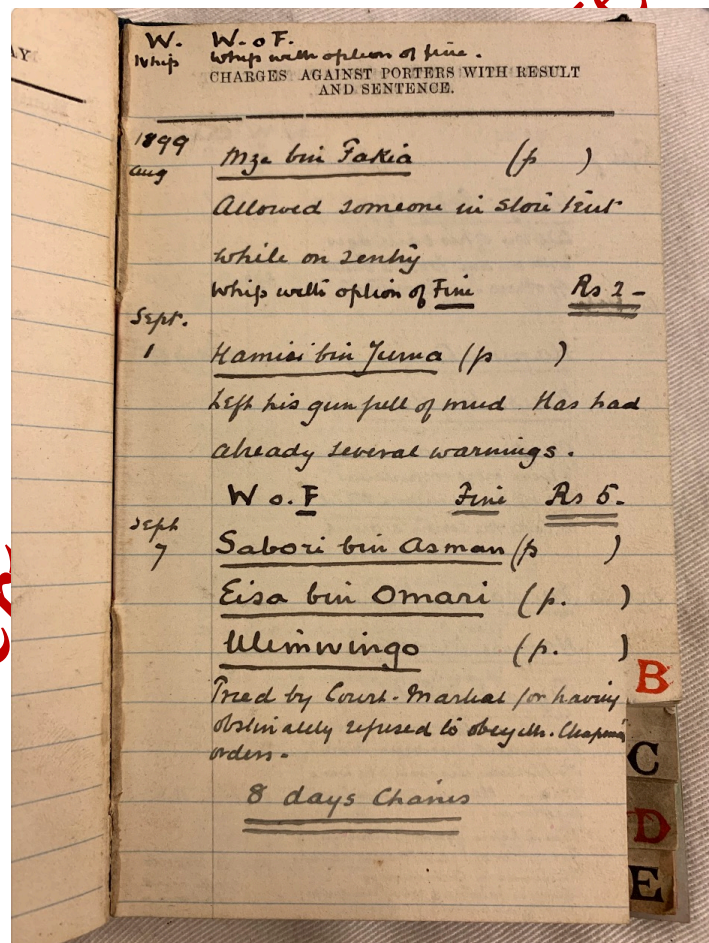 AY.
W. W. of F.
Whip Whip with option of fine.
CHARGES AGAINST PORTERS WITH RESULT
AND SENTENCE.
1899
Aug Mze bin Fakia (p )
Allowed someone in Store tent
while on sentry
Whip with option of Fine Rs 2 -
Sept.
1 Hamisi bin Juma (p )
Left his gun full of mud Has had
already several warnings.
W o. F Fine Rs 5.
Sept
7 Sabori bin Asman (p )
Eisa bin Omari (p. )
(p. )
B
Tried by Court-Martial for having
obstinately refused to obey Mr. Chapman's
orders.
C
8 days Chains
D
E